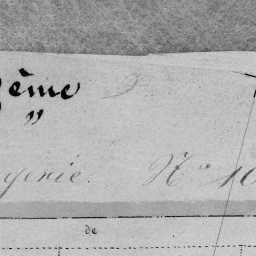 ème
"
génie. N° 10
de